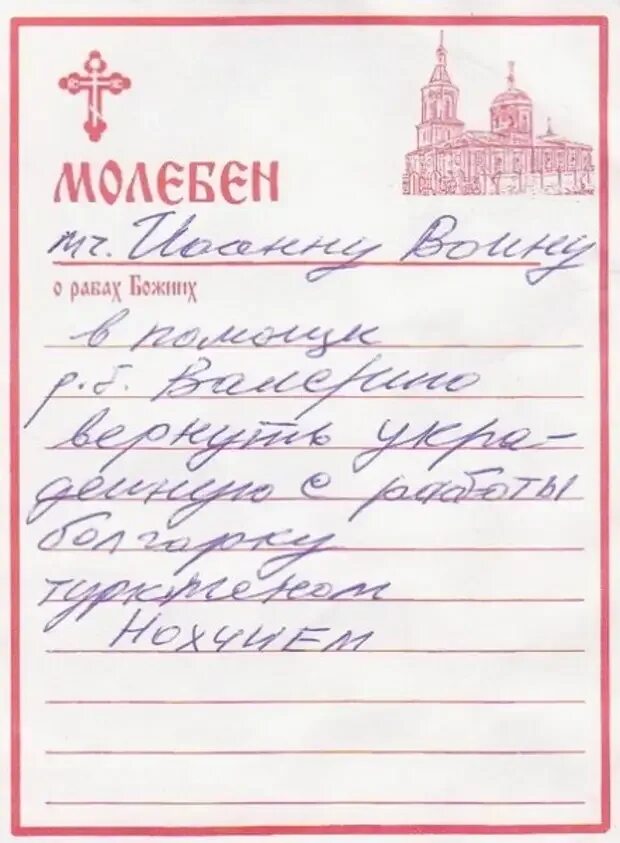 МОЛЕБЕН
мч. Иоанну Воину
о рабах Божиих
в помощи
р.б. Валерию
вернуть укра-
денную с работы
болгарку
туркменом
Нохчием